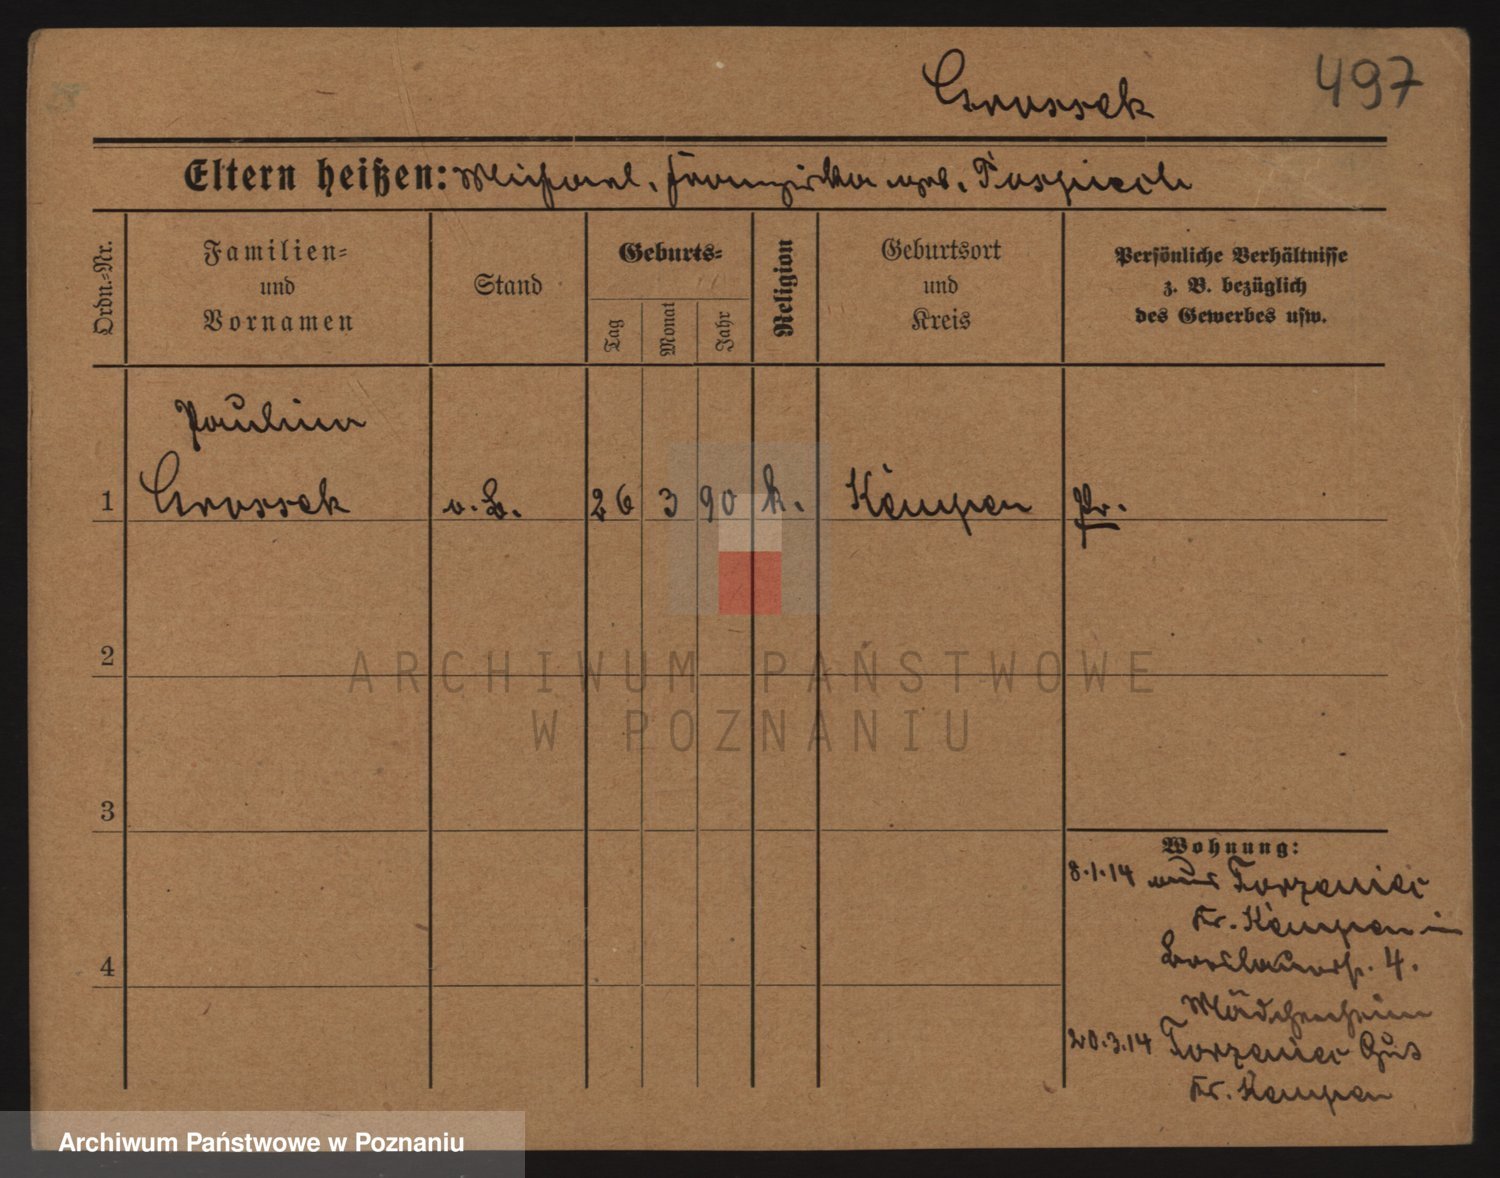 Grossek 497
Eltern heißen: Michael, Franziska geb. Pospiech
Ordn.=Nr.
Familien=
und
Vornamen
Stand
Geburts=
Tag
Monat
Jahr
Religion
Geburtsort
und
Kreis
Persönliche Verhältnisse
z. B. bezüglich
des Gewerbes usw.
Paulina
1 Grossek o. B. 26 3 90 k. Kempen Pr.
2
ARCHIWUM PAŃSTWOWE
W POZNANIU
3
Wohnung:
8.1.14 aus Torzeniec
Kr. Kempen in
4 Breslauerstr. 4.
Mädchenheim
20.3.14 Torzeniec Gut
Kr. Kempen
Archiwum Państwowe w Poznaniu